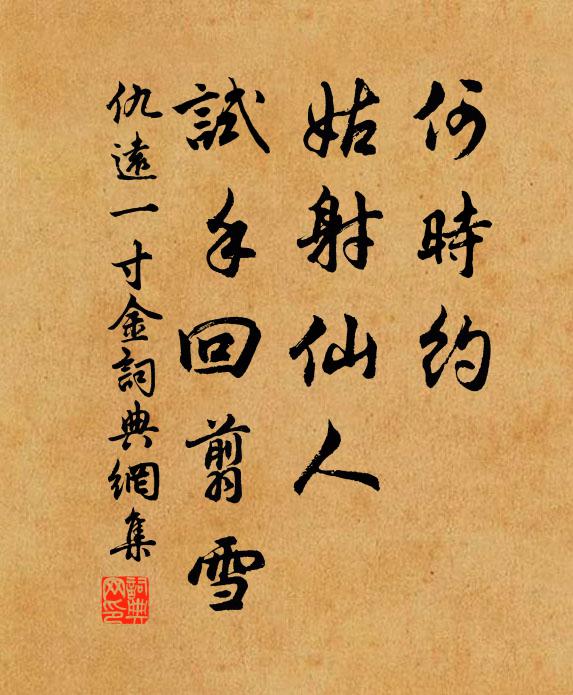 何時約
姑射仙人
試手回翦雪
仇遠一寸金詞典網集
詞典网印